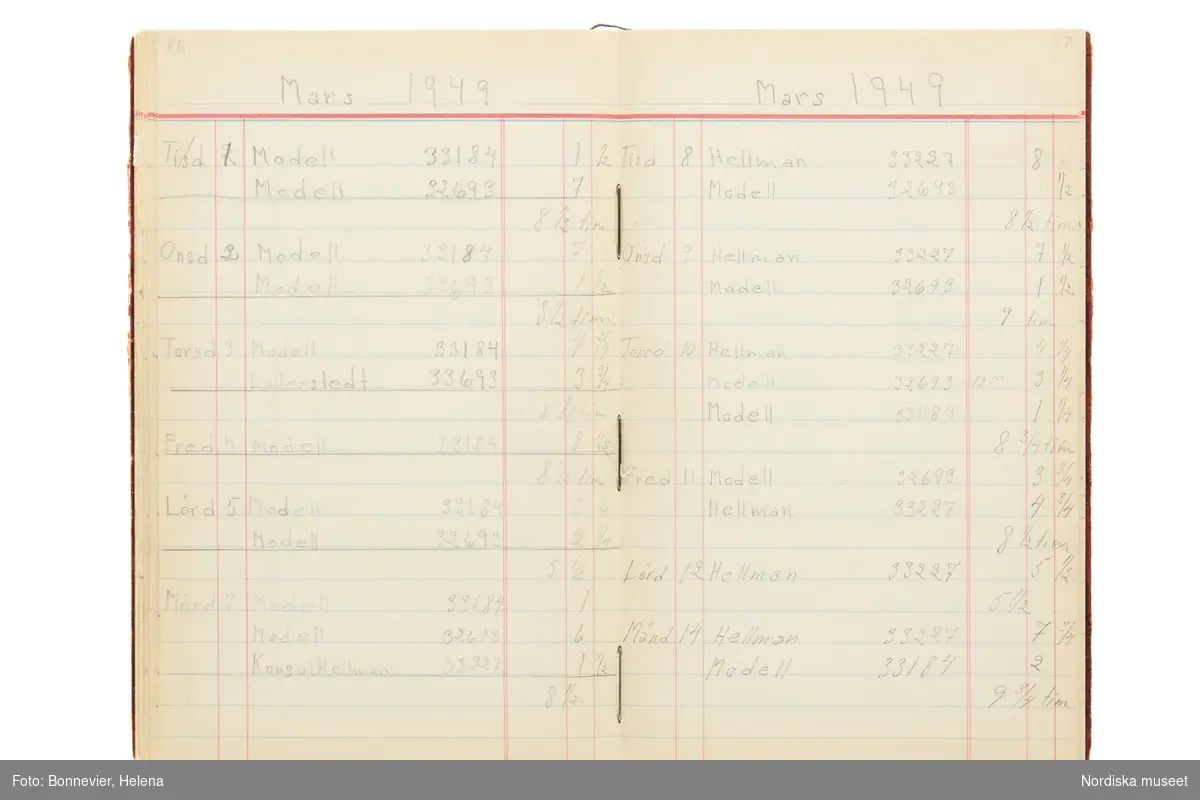 86
Mars 1949
Tisd 1 Modell 33184 1 1/2
Modell 32693 7
8 1/2 tim
Onsd 2 Modell 33184 7
Modell 32693 1 1/2
8 1/2 tim
Torsd 3 Modell 33184 3/4
33693 3 3/4
8 1/2 tim
Fred 4 Modell 33184 8 1/2
8 1/2 tim
Lörd 5 Modell 33184
Modell 32693 2 1/4
5 1/2
Månd 7 Modell 33184 1
Modell 32693 6
Konsul Hellman 33227 1 1/2
8 1/2
7
Mars 1949
Tisd 8 Hellman 33227 8
Modell 32693 1/2
8 1/2 tim
Onsd 9 Hellman 33227 7 1/2
Modell 32693 1 1/2
9 tim
Torsd 10 Hellman 33227 4 1/4
Modell 32693 3 1/4
Modell 33184 1 1/4
8 3/4 tim
Fred 11 Modell 32693 3 3/4
Hellman 33227 4 3/4
8 1/2 tim
Lörd 12 Hellman 33227 5 1/2
5 1/2
Månd 14 Hellman 33227 7 3/4
Modell 33184 2
9 3/4 tim
Foto: Bonnevier, Helena
Nordiska museet